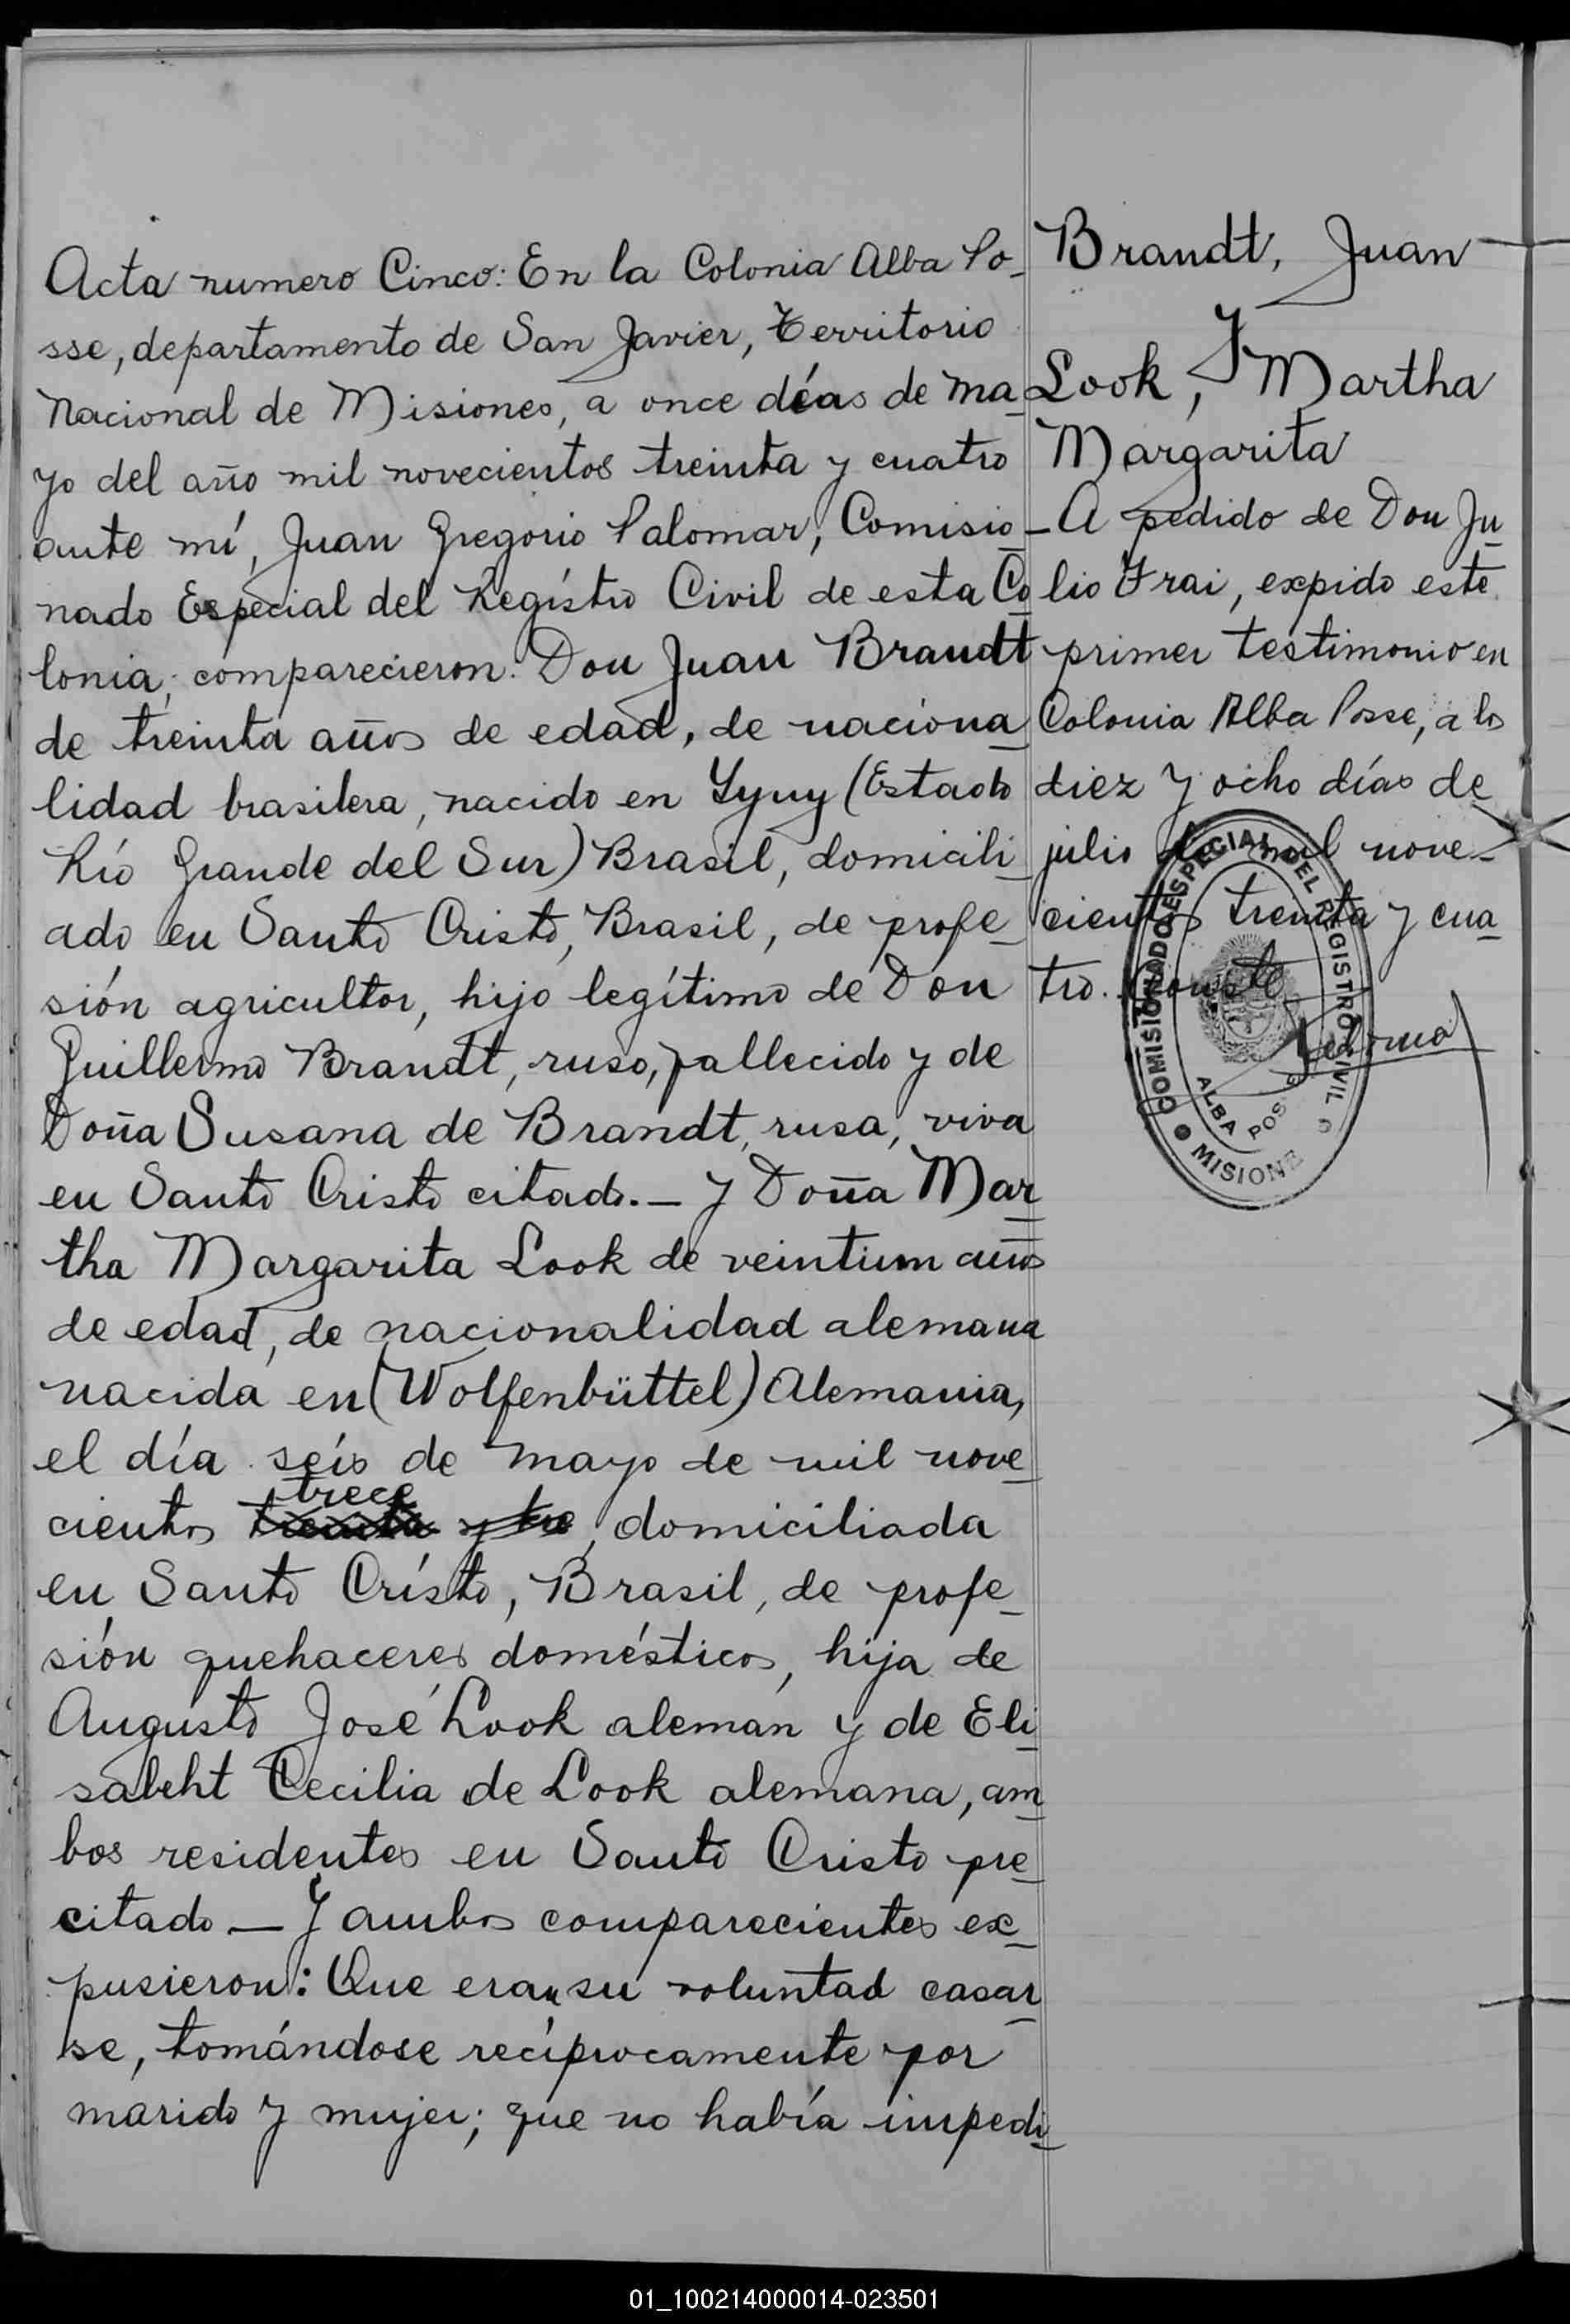 Acta numero Cinco: En la Colonia Alba Po-
sse, departamento de San Javier, Territorio
Nacional de Misiones, a once días de ma
yo del año mil novecientos treinta y cuatro
ante mí, Juan Gregorio Palomar, Comisio
nado Especial del Registro Civil de esta Co
lonia, comparecieron: Don Juan Brandt
de treinta años de edad, de naciona
lidad brasilera, nacido en Yyuy (Estado
Río Grande del Sur) Brasil, domicili
ado en Santo Cristo, Brasil, de profe
sión agricultor, hijo legítimo de Don
Guillermo Brandt, ruso, fallecido y de
Doña Susana de Brandt, rusa, viva
en Santo Cristo citado.- y Doña Mar
tha Margarita Look de veintium años
de edad, de nacionalidad alemana
nacida en (Wolfenbüttel) Alemania,
el día seis de mayo de mil nove
trece
cientos treinta y tre, domiciliada
en Santo Cristo, Brasil, de profe
sión quehaceres domésticos, hija de
Augusto José Look alemán y de Eli
sabeht Cecilia de Look alemana, am
bos residentes en Santo Cristo pre
citado - Y ambos comparecientes ex
pusieron: Que eran su voluntad casar
se, tomándose recíprocamente por
marido y mujer; que no había impedi
Brandt, Juan
Y
Look, Martha
Margarita
- A pedido de Don Ju
lio Frai, expido este
primer testimonio en
Colonia Alba Posse, a los
diez y ocho días de
julio de mil nove-
cientos treinta y cua
tro. Conste
COMISIONADO ESPECIAL DEL REGISTRO CIVIL
ALBA POSSE
MISIONE
01_100214000014-023501